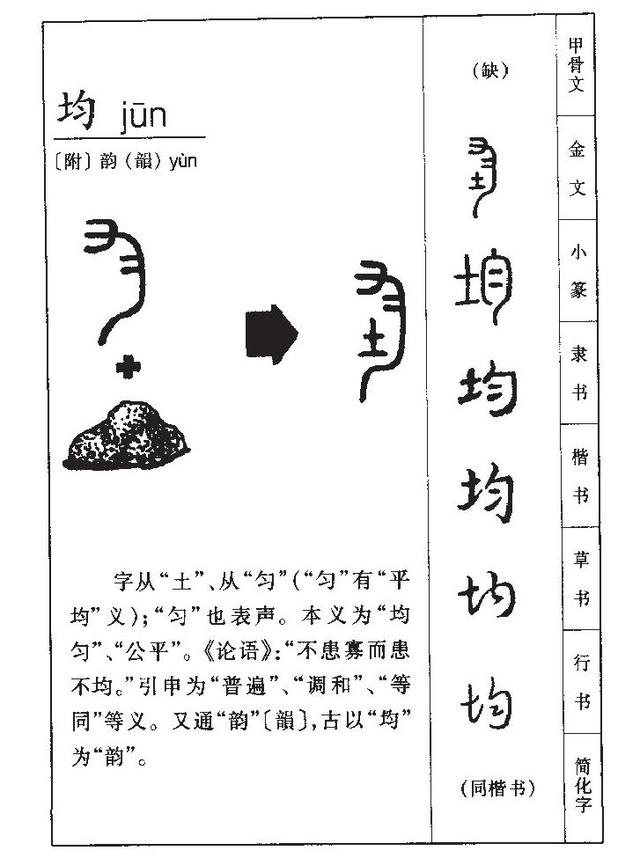 均 jūn
〔附〕韵(韻) yùn
土
字从“土”、从“匀”(“匀”有“平
均”义);“匀”也表声。本义为“均
匀”、“公平”。《论语》:“不患寡而患
不均。”引申为“普遍”、“调和”、“等
同”等义。又通“韵”〔韻〕,古以“均”
为“韵”。
(缺) 甲骨文
均 金文
均 小篆
均 隶书
均 楷书
均 草书
均 行书
(同楷书) 简化字